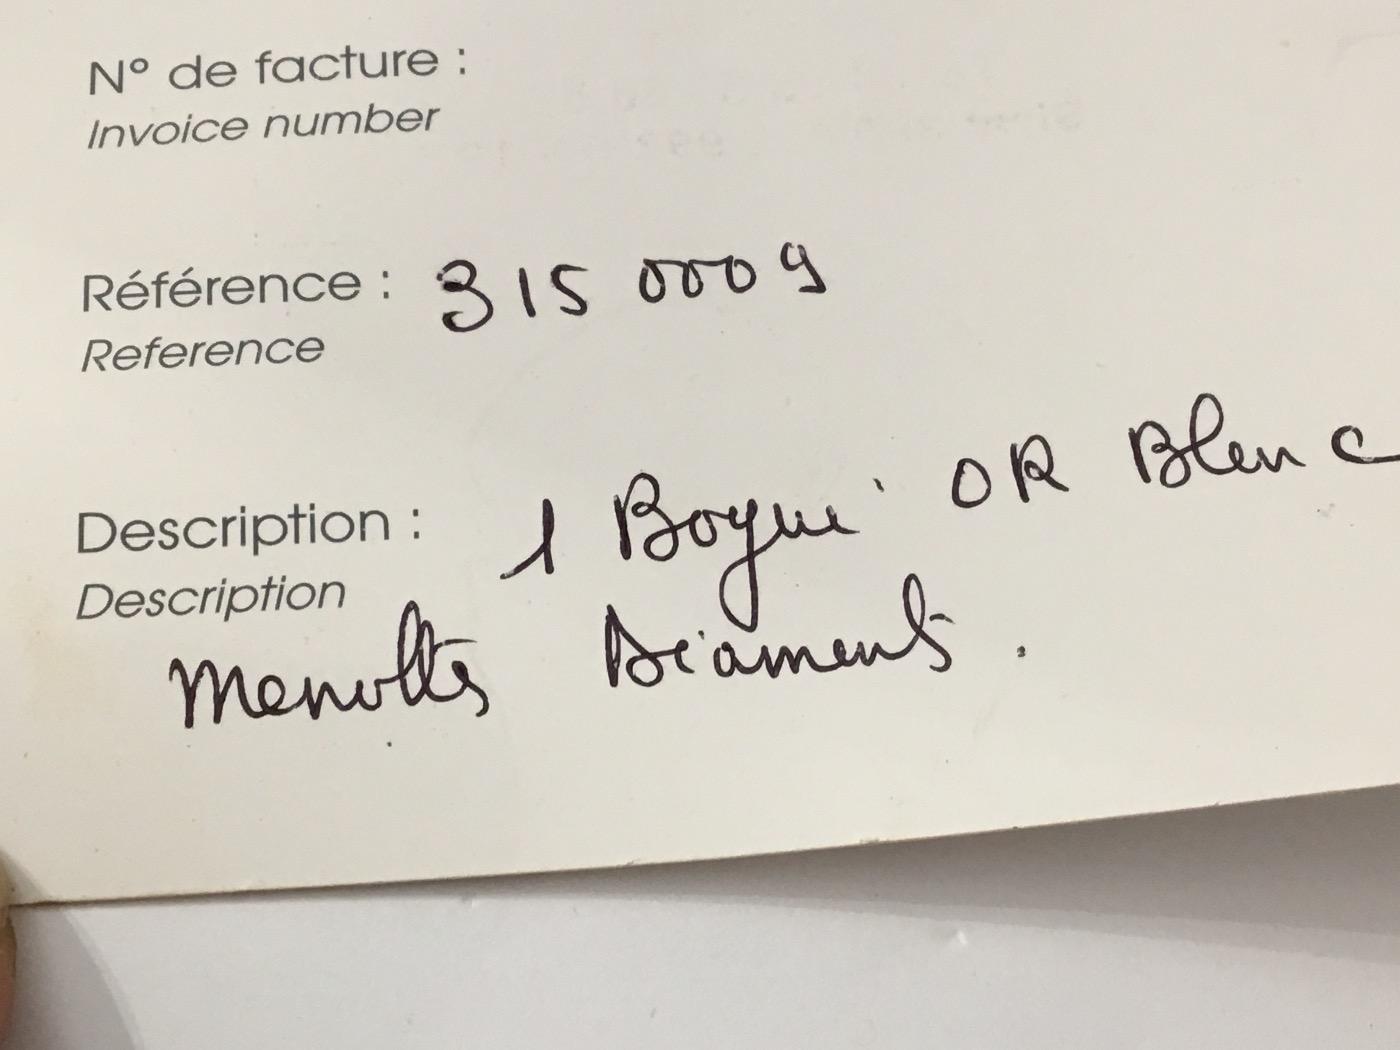 N° de facture :
Invoice number
Référence : 315 0009
Reference
Description : 1 Bague OR Blanc
Description
Menottes Diamants.